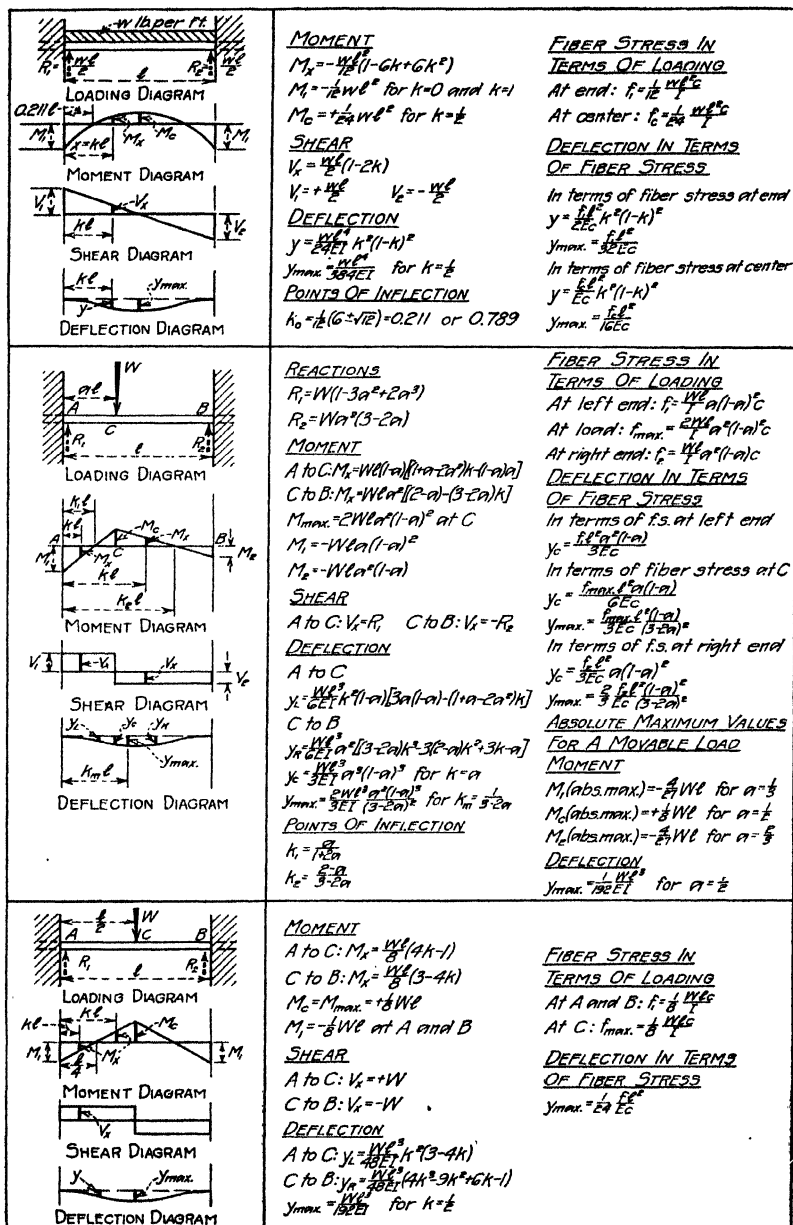 w lb. per ft.
R₁=wl/2
R₂=wl/2
l
LOADING DIAGRAM
0.211l
M₁
x=kl
Mₓ
M_c
M₁
MOMENT DIAGRAM
V₁
Vₓ
kl
V₂
SHEAR DIAGRAM
kl
y
ymax.
DEFLECTION DIAGRAM
MOMENT
Mₓ=-wl²/12(1-6k+6k²)
M₁=-1/12 wl² for k=0 and k=1
M_c=+1/24 wl² for k=1/2
SHEAR
Vₓ=wl/2(1-2k)
V₁=+wl/2 V₂=-wl/2
DEFLECTION
y=wl⁴/24EI k²(1-k)²
ymax.=wl⁴/384EI for k=1/2
POINTS OF INFLECTION
k₀=1/12(6±√12)=0.211 or 0.789
FIBER STRESS IN
TERMS OF LOADING
At end: f₁=1/12 wl²c/I
At center: f_c=1/24 wl²c/I
DEFLECTION IN TERMS
OF FIBER STRESS
In terms of fiber stress at end
y=f₁l²/2Ec k²(1-k)²
ymax.=f₁l²/32Ec
In terms of fiber stress at center
y=f_cl²/Ec k²(1-k)²
ymax.=f_cl²/16Ec
W
al
A
B
C
R₁
R₂
l
LOADING DIAGRAM
k₁l
kl
A
M₁
Mₓ
C
M_c
Mₓ
B
M₂
kl
k₂l
MOMENT DIAGRAM
V₁
Vₓ
Vₓ
V₂
SHEAR DIAGRAM
y_L
y_c
y_R
ymax.
k_m l
DEFLECTION DIAGRAM
REACTIONS
R₁=W(1-3a²+2a³)
R₂=Wa²(3-2a)
MOMENT
A to C: Mₓ=Wl(1-a)[(1+a-2a²)k-(1-a)a]
C to B: Mₓ=Wla²[(2-a)-(3-2a)k]
Mmax.=2Wla²(1-a)² at C
M₁=-Wla(1-a)²
M₂=-Wla²(1-a)
SHEAR
A to C: Vₓ=R₁ C to B: Vₓ=-R₂
DEFLECTION
A to C
y_L=Wl³/6EI k²(1-a)[3a(1-a)-(1+a-2a²)k]
C to B
y_R=Wl³/6EI a²[(3-2a)k³-3(2-a)k²+3k-a]
y_c=Wl³/3EI a³(1-a)³ for k=a
ymax.=2Wl³/3EI a²(1-a)³/(3-2a)² for k_m=1/3-2a
POINTS OF INFLECTION
k₁=a/1+2a
k₂=2-a/3-2a
FIBER STRESS IN
TERMS OF LOADING
At left end: f₁=Wl/I a(1-a)²c
At load: fmax.=2Wl/I a²(1-a)²c
At right end: f₂=Wl/I a²(1-a)c
DEFLECTION IN TERMS
OF FIBER STRESS
In terms of f.s. at left end
y_c=f₁l²a²(1-a)/3Ec
In terms of fiber stress at C
y_c=fmax.l²a(1-a)/6Ec
ymax.=fmax.l²(1-a)/3Ec(3-2a)²
In terms of f.s. at right end
y_c=f₂l²/3Ec a(1-a)²
ymax.=2/3 f₂l²(1-a)²/Ec(3-2a)²
ABSOLUTE MAXIMUM VALUES
FOR A MOVABLE LOAD
MOMENT
M₁(abs.max.)=-4/27 Wl for a=1/3
M_c(abs.max.)=+1/8 Wl for a=1/2
M₂(abs.max.)=-4/27 Wl for a=2/3
DEFLECTION
ymax.=1/192 Wl³/EI for a=1/2
l/2
W
A
C
B
R₁
R₂
l
LOADING DIAGRAM
kl
kl
M_c
M₁
Mₓ
l/4
M₁
MOMENT DIAGRAM
Vₓ
SHEAR DIAGRAM
y
ymax.
DEFLECTION DIAGRAM
MOMENT
A to C: Mₓ=Wl/8(4k-1)
C to B: Mₓ=Wl/8(3-4k)
M_c=Mmax.=+1/8 Wl
M₁=-1/8 Wl at A and B
SHEAR
A to C: Vₓ=+W
C to B: Vₓ=-W
DEFLECTION
A to C: y_L=Wl³/48EI k²(3-4k)
C to B: y_R=Wl³/48EI(4k³-9k²+6k-1)
ymax.=Wl³/192EI for k=1/2
FIBER STRESS IN
TERMS OF LOADING
At A and B: f₁=1/8 Wlc/I
At C: fmax.=1/8 Wlc/I
DEFLECTION IN TERMS
OF FIBER STRESS
ymax.=1/24 fl²/Ec